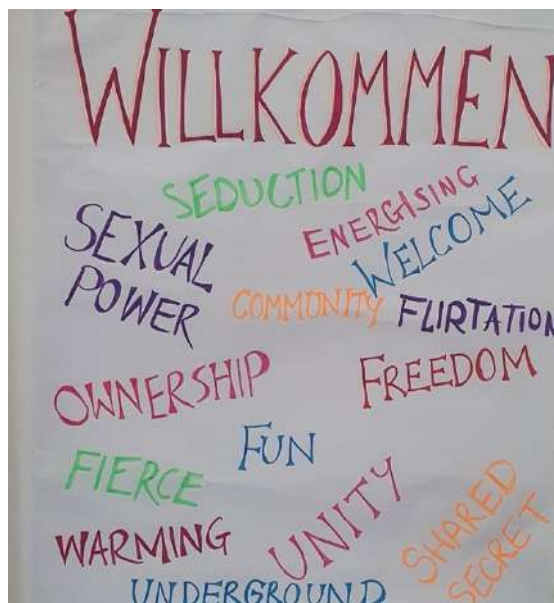 WILLKOMMEN
SEDUCTION
ENERGISING
SEXUAL
POWER
WELCOME
COMMUNITY
FLIRTATION
OWNERSHIP
FREEDOM
FUN
FIERCE
UNITY
WARMING
SHARED
SECRET
UNDERGROUND